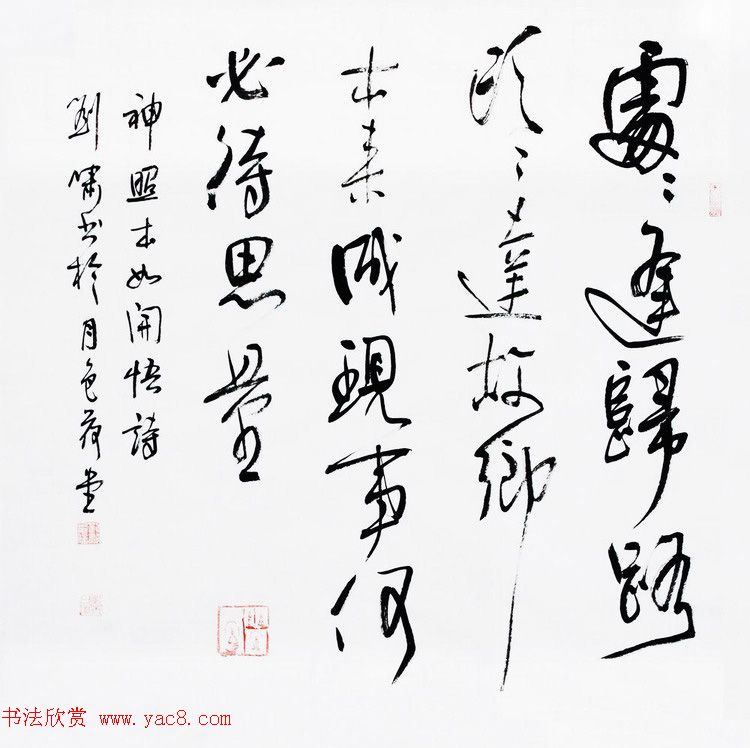 處々逢歸路
頭々達故鄉
本来成現事何
必待思量
神照本如開悟詩
劉嘯书於月色荷堂
书法欣赏 www.yac8.com